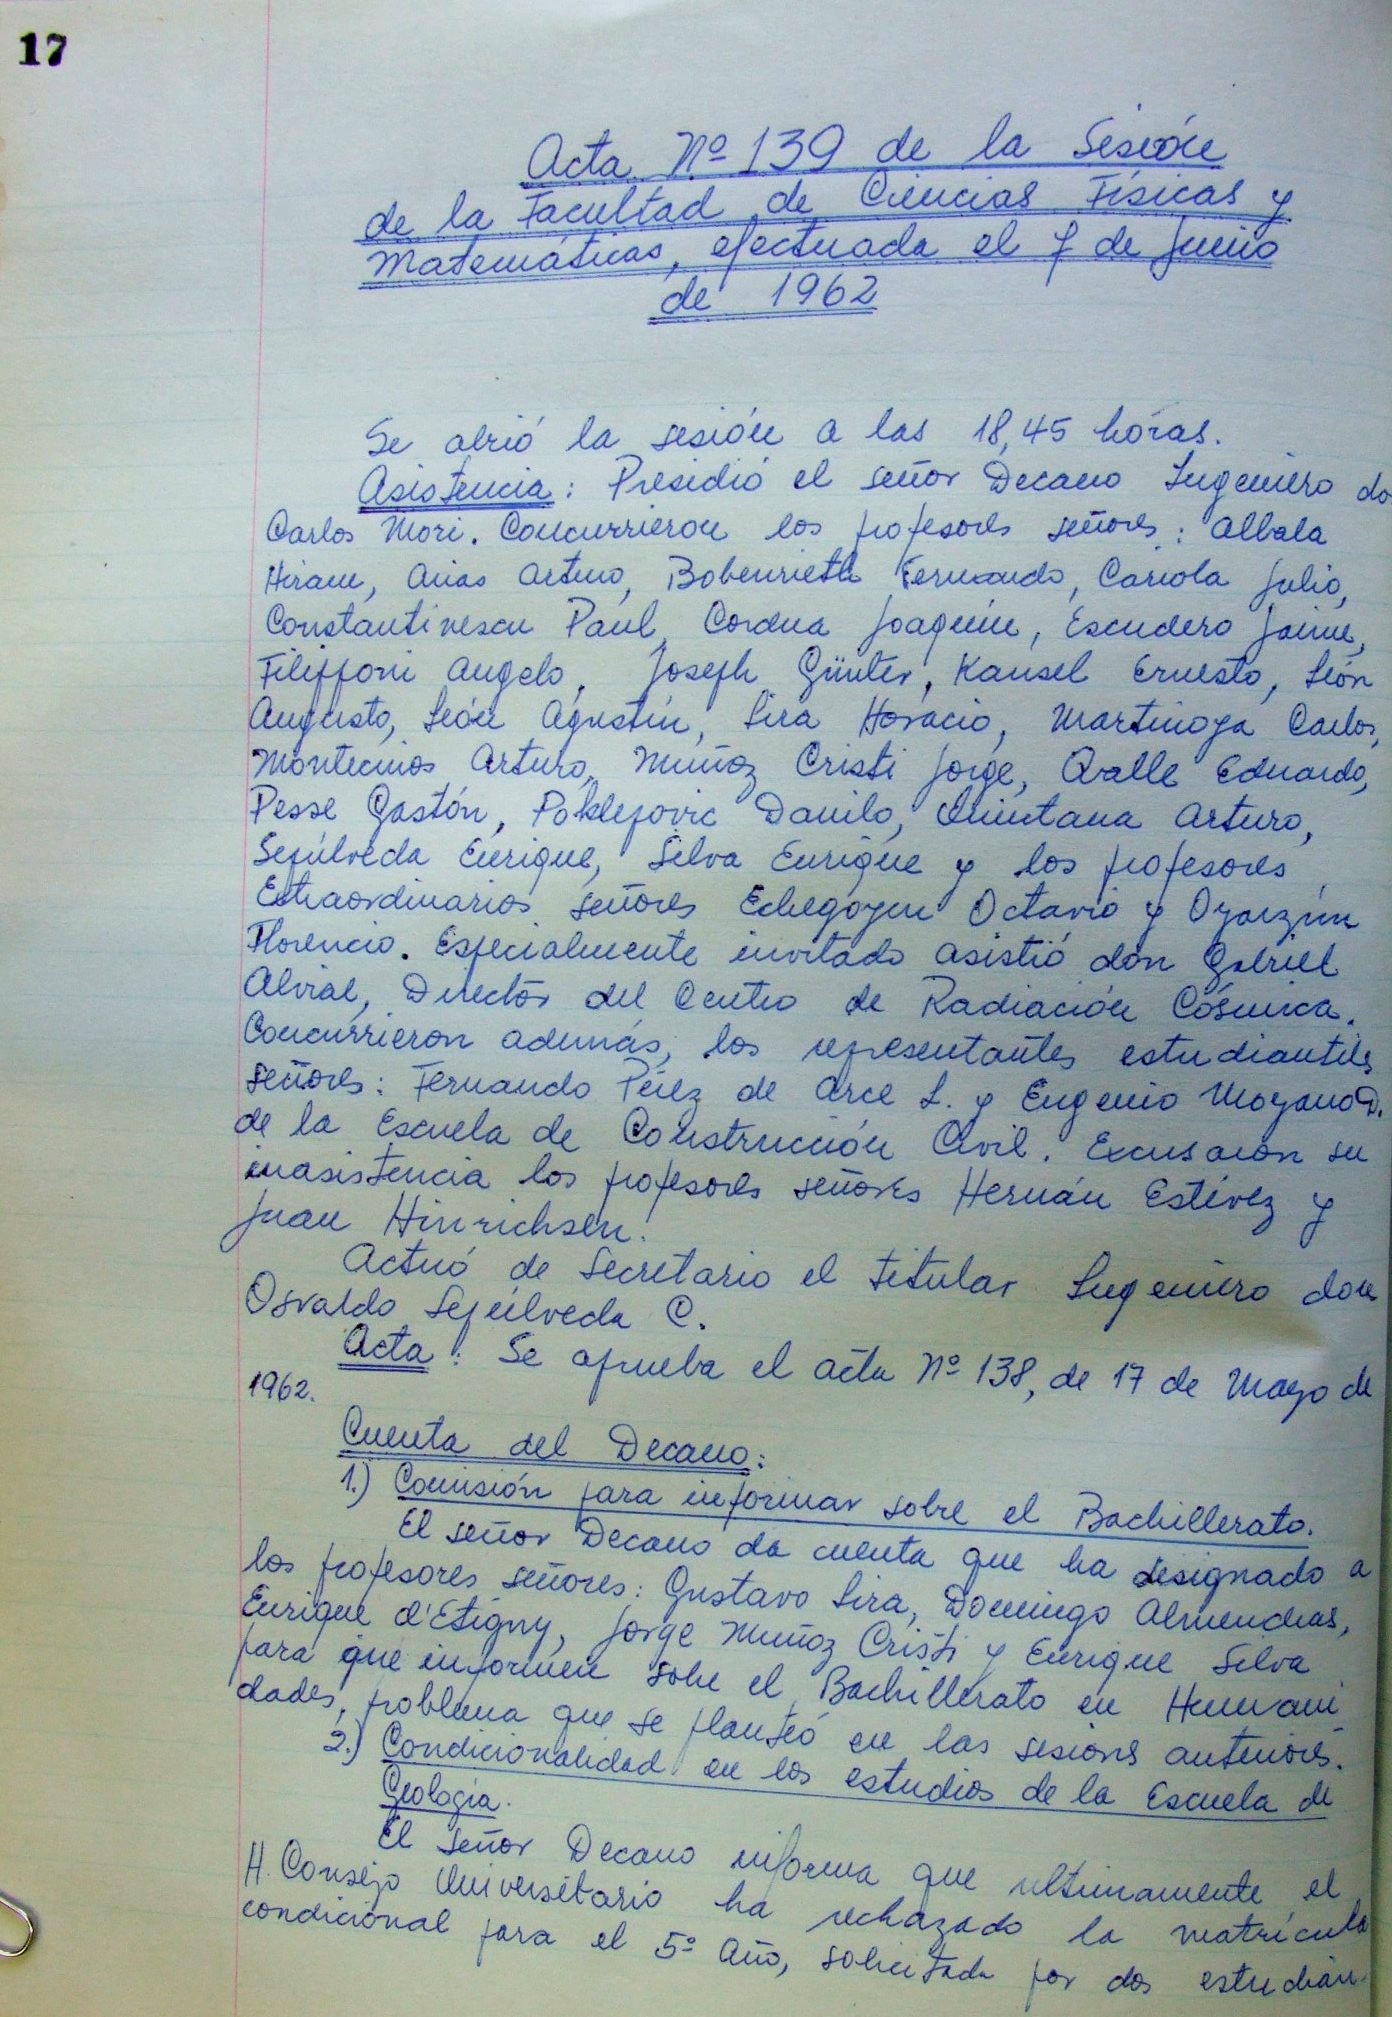 17
Acta Nº 139 de la Sesión
de la Facultad de Ciencias Físicas y
Matemáticas, efectuada el 7 de Junio
de 1962
Se abrió la sesión a las 18,45 horas.
Asistencia: Presidió el señor Decano Ingeniero do
Carlos Mori. Concurrieron los profesores señores: Albala
Hiram, Arias Arturo, Bobenrieth Fernando, Cariola Julio,
Constantinescu Paul, Cordua Joaquín, Escudero Jaime,
Filippони Angelo, Joseph Günter, Kausel Ernesto, León
Augusto, León Agustín, Lira Horacio, Martinoya Carlos,
Montecinos Arturo, Muñoz Cristi Jorge, Ovalle Eduardo,
Pesse Gastón, Poklepovic Danilo, Quintana Arturo,
Sepúlveda Enrique, Silva Enrique y los profesores
Extraordinarios señores Echegoyen Octavio y Oyarzún
Florencio. Especialmente invitado asistió don Gabriel
Alvial, Director del Centro de Radiación Cósmica.
Concurrieron además, los representantes estudiantiles
señores: Fernando Pérez de Arce L. y Eugenio Moyano D.
de la Escuela de Construcción Civil. Excusaron su
inasistencia los profesores señores Hernán Estévez y
Juan Hinrichsen.
Actuó de Secretario el titular Ingeniero don
Osvaldo Sepúlveda C.
Acta: Se aprueba el acta Nº 138, de 17 de Mayo de
1962.
Cuenta del Decano:
1.) Comisión para informar sobre el Bachillerato.
El señor Decano da cuenta que ha designado a
los profesores señores: Gustavo Lira, Domingo Almendras,
Enrique d'Etigny, Jorge Muñoz Cristi y Enrique Silva
para que informen sobre el Bachillerato en Humani
dades, problema que se planteó en las sesiones anteriores.
2.) Condicionalidad en los estudios de la Escuela de
Geología.
El señor Decano informa que ultimamente el
H. Consejo Universitario ha rechazado la matrícula
condicional para el 5º Año, solicitada por dos estudian-